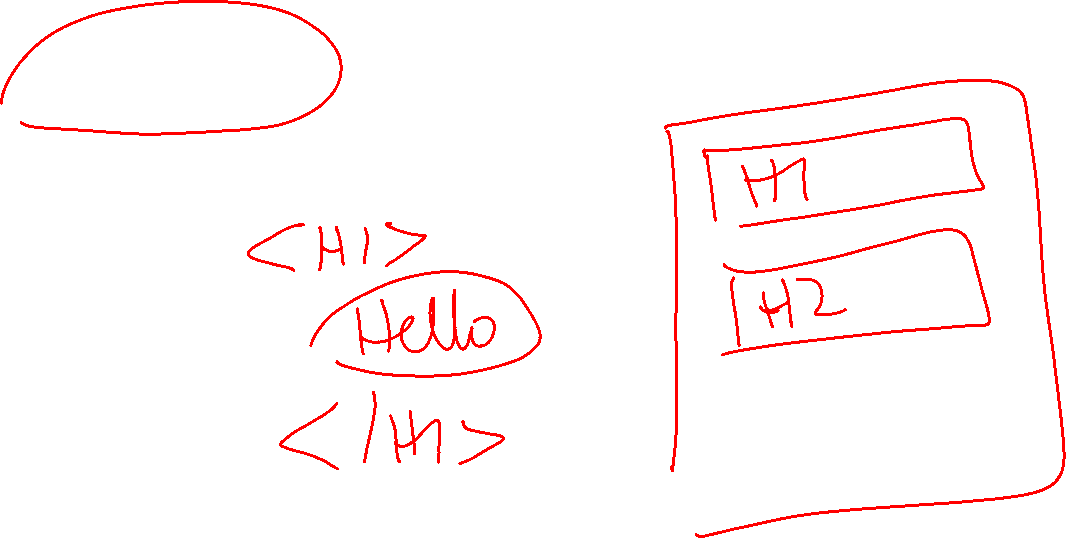 <H1>
Hello
</H1>
H1
H2